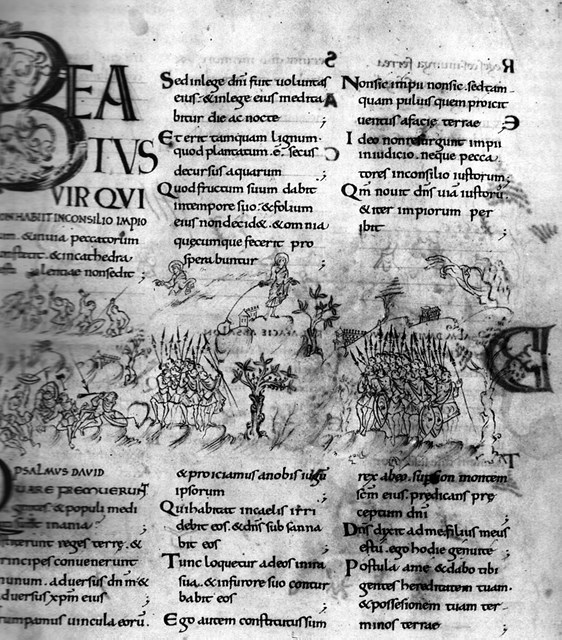 BEA
TVS
VIR QVI
NON HABIIT INCONSILIO IMPIO
rum. & inuia peccatorum
nonstetit. & incathedra
lentiae nonsedit ;
Sed inlege dñi fuit uoluntas
eius. & inlege eius medita
bitur die ac nocte ;
Et erit tamquam lignum.
quod plantatum ē. secus
decursus aquarum ;
Quod fructum suum dabit
intempore suo. & folium
eius nondecid&. & omnia
quęcumque fecerit pro
sperabuntur ;
Nonsic impii nonsic. sed tam
quam puluis quem proicit
uentus afacie terrae ;
Ideo nonresurgunt impii
iniudicio. neque pecca
tores inconsilio iustorum ;
Qm̄ nouit dñs uiā iustorū.
& iter impiorum per
ibit ;
PSALMVS DAVID
QUARE FREMUERUNT
gentes & populi medi
inania ;
stiterunt reges terrę. &
principes conuenerunt
inunum. aduersus dñm &
aduersus xp̄m eius ;
rumpamus uincula eorū.
& proiciamus anobis iugū
ipsorum ;
Qui habitat incaelis irri
debit eos. & dñs subsanna
bit eos ;
Tunc loquetur adeos inira
sua. & infurore suo contur
babit eos ;
Ego autem constitutus sum
rex abeo. super sion montem
sc̄m eius. predicans prę
ceptum dñi ;
Dñs dixit ad me filius meus
es tu. ego hodie genui te ;
Postula ame & dabo tibi
gentes hereditatem tuam.
& possesionem tuam ter
minos terrae ;